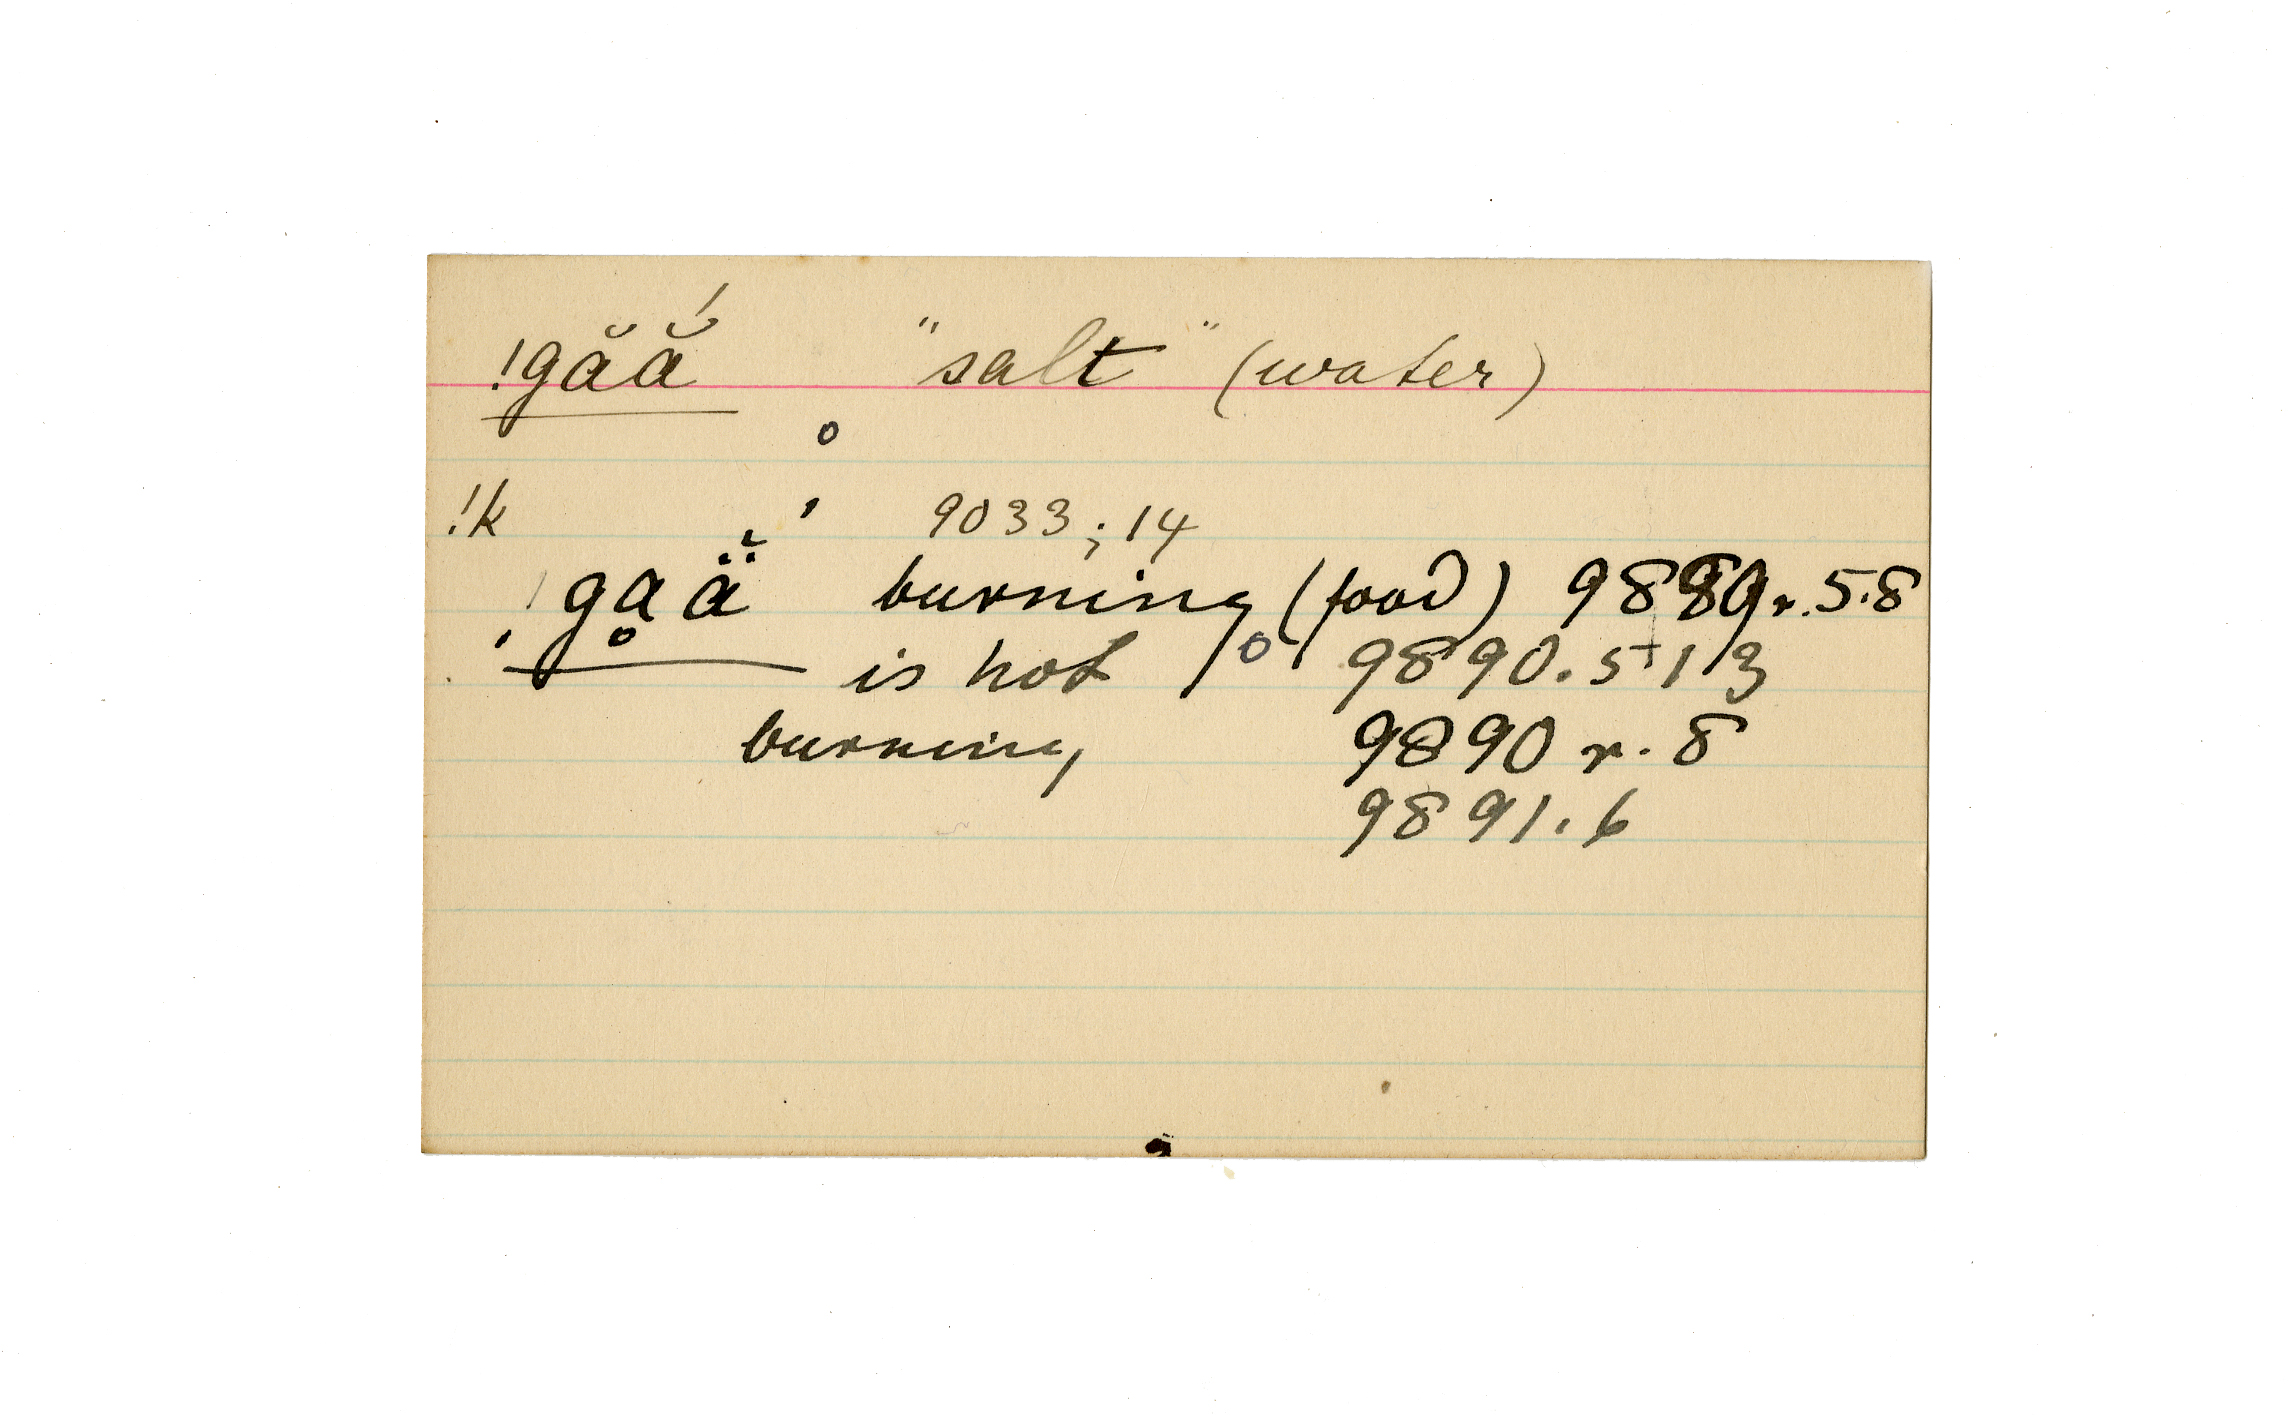 !găắ "salt" (water)
!k 9033; 14
!g̥aä̆ burning (food) 9889r. 5.8
is hot 9890. 5 13
burning 9890 r. 8
9891. 6